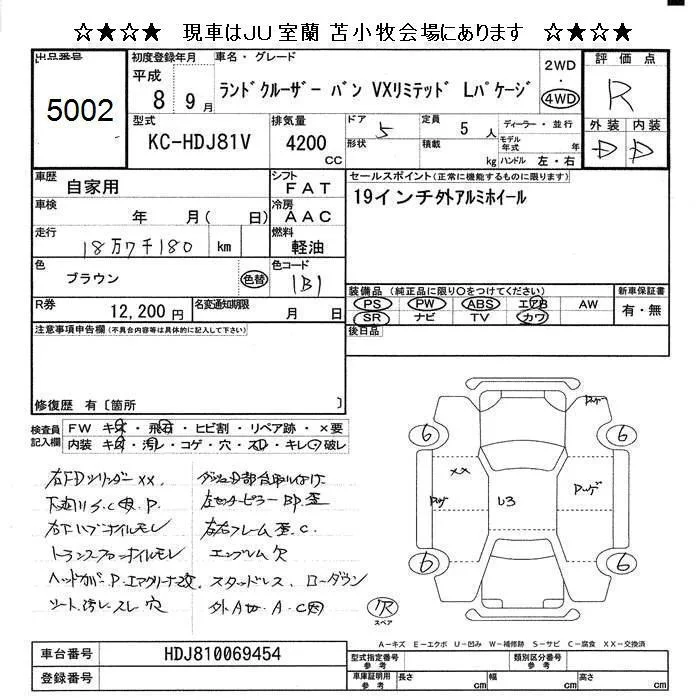 ☆★☆★ 現車はJU室蘭 苫小牧会場にあります ☆★☆★
出品番号
5002
初度登録年月
平成
8 9月
車名・グレード
ランドクルーザー バン VXリミテッド Lパケージ
2WD
・
4WD
評価点
R
外装 内装
D D
型式
KC-HDJ81V
排気量
4200
CC
ドア
5
形状
定員
5人
積載
kg
ディーラー・並行
モデル年式 年
ハンドル 左・右
車歴
自家用
シフト
FAT
車検
年 月( 日)
冷房
AAC
走行
18万7千180 km
燃料
軽油
色
ブラウン
色替
色コード
1B1
R券
12,200円
名変通知期限
月 日
セールスポイント(正常に機能するものに限ります)
19インチ外アルミホイール
装備品 (純正品に限り○をつけてください)
PS PW ABS エアB AW
SR ナビ TV カワ
新車保証書
有・無
後日品
注意事項申告欄(不具合内容等は具体的に記入して下さい)
修復歴 有〔箇所 〕
検査員記入欄
FW キズ・飛石・ヒビ割・リペア跡・×要
内装 キズ・汚れ・コゲ・穴・スレ・キレ・破レ
右FDシリンダー XX.
下廻りS.C P.
右Fハブオイルモレ
トランスファーオイルモレ
ヘッドカバーP.エアクリーナ改.
シート汚レスレ穴
左センターピラーBP.歪
左右フレーム歪.C.
エンブレム欠
スタッドレス、ローダウン
6
6
6
6
XX
U3
欠
スペア
A-キズ E-エクボ U-凹み W-補修跡 S-サビ C-腐食 XX-交換済
車台番号
HDJ810069454
登録番号
型式指定番号
参考
類別区分番号
参考
車庫証明用
参考
長さ cm
幅 cm
高さ cm